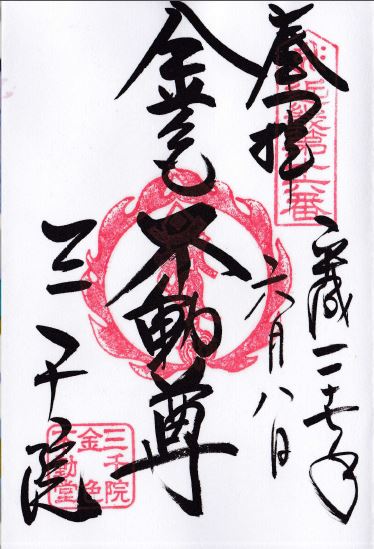 奉拝
第十六番
平成二十七年
六月八日
金色不動尊
三千院
三千院
金色
不動堂